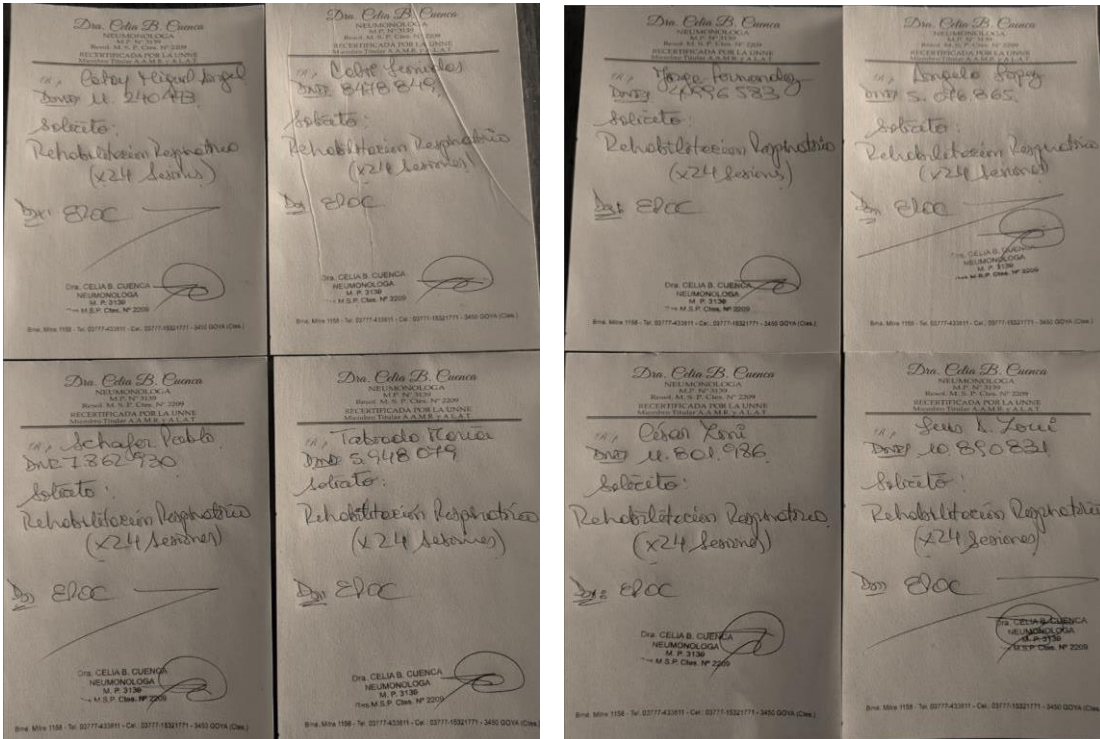 Dra. Celia B. Cuenca
NEUMONOLOGA
M.P. Nº 3139
Resol. M. S. P. Ctes. Nº 2209
RECERTIFICADA POR LA UNNE
Miembro Titular A.A.M.R. y A.L.A.T.
Miguel Angel
DNI: 11.240.473
Solicito:
Rehabilitación Respiratoria
(x24 Sesiones)
Dx: EPOC
Dra. CELIA B. CUENCA
NEUMONOLOGA
M. P. 3139
M.S.P. Ctes. Nº 2209
Bmé. Mitre 1158 - Tel. 03777-433811 - Cel.: 03777-15321771 - 3450 GOYA (Ctes.)
Dra. Celia B. Cuenca
NEUMONOLOGA
M.P. Nº 3139
Resol. M. S. P. Ctes. Nº 2209
RECERTIFICADA POR LA UNNE
Miembro Titular A.A.M.R. y A.L.A.T.
DNI: 8478.849
Solicito:
Rehabilitación Respiratoria
(x24 Sesiones)
Dx EPOC
Dra. CELIA B. CUENCA
NEUMONOLOGA
M. P. 3139
M.S.P. Ctes. Nº 2209
Bmé. Mitre 1158 - Tel. 03777-433811 - Cel.: 03777-15321771 - 3450 GOYA (Ctes.)
Dra. Celia B. Cuenca
NEUMONOLOGA
M.P. Nº 3139
Resol. M. S. P. Ctes. Nº 2209
RECERTIFICADA POR LA UNNE
Miembro Titular A.A.M.R. y A.L.A.T.
Jorge Fernandez
DNI
Solicito:
Rehabilitación Respiratoria
(x24 Sesiones)
Dx: EPOC
Dra. CELIA B. CUENCA
NEUMONOLOGA
M. P. 3139
M.S.P. Ctes. Nº 2209
Bmé. Mitre 1158 - Tel. 03777-433811 - Cel.: 03777-15321771 - 3450 GOYA (Ctes.)
Dra. Celia B. Cuenca
NEUMONOLOGA
M.P. Nº 3139
Resol. M. S. P. Ctes. Nº 2209
RECERTIFICADA POR LA UNNE
Miembro Titular A.A.M.R. y A.L.A.T.
Angela Lopez
DNI 5.076.865
Solicito:
Rehabilitación Respiratoria
(x24 Sesiones)
Dx EPOC
Dra. CELIA B. CUENCA
NEUMONOLOGA
M. P. 3139
M.S.P. Ctes. Nº 2209
Bmé. Mitre 1158 - Tel. 03777-433811 - Cel.: 03777-15321771 - 3450 GOYA (Ctes.)
Dra. Celia B. Cuenca
NEUMONOLOGA
M.P. Nº 3139
Resol. M. S. P. Ctes. Nº 2209
RECERTIFICADA POR LA UNNE
Miembro Titular A.A.M.R. y A.L.A.T.
Schafer Pablo
DNI: 7.862.930
Solicito:
Rehabilitación Respiratoria
(x24 Sesiones)
Dx EPOC
Dra. CELIA B. CUENCA
NEUMONOLOGA
M. P. 3139
M.S.P. Ctes. Nº 2209
Bmé. Mitre 1158 - Tel. 03777-433811 - Cel.: 03777-15321771 - 3450 GOYA (Ctes.)
Dra. Celia B. Cuenca
NEUMONOLOGA
M.P. Nº 3139
Resol. M. S. P. Ctes. Nº 2209
RECERTIFICADA POR LA UNNE
Miembro Titular A.A.M.R. y A.L.A.T.
DNI 5.948 079
Solicito:
Rehabilitación Respiratoria
(x24 Sesiones)
Dx EPOC
Dra. CELIA B. CUENCA
NEUMONOLOGA
M. P. 3139
M.S.P. Ctes. Nº 2209
Bmé. Mitre 1158 - Tel. 03777-433811 - Cel.: 03777-15321771 - 3450 GOYA (Ctes.)
Dra. Celia B. Cuenca
NEUMONOLOGA
M.P. Nº 3139
Resol. M. S. P. Ctes. Nº 2209
RECERTIFICADA POR LA UNNE
Miembro Titular A.A.M.R. y A.L.A.T.
César Zoni
DNI 11.801.986
Solicito:
Rehabilitación Respiratoria
(x24 Sesiones)
Dx: EPOC
Dra. CELIA B. CUENCA
NEUMONOLOGA
M. P. 3139
M.S.P. Ctes. Nº 2209
Bmé. Mitre 1158 - Tel. 03777-433811 - Cel.: 03777-15321771 - 3450 GOYA (Ctes.)
Dra. Celia B. Cuenca
NEUMONOLOGA
M.P. Nº 3139
Resol. M. S. P. Ctes. Nº 2209
RECERTIFICADA POR LA UNNE
Miembro Titular A.A.M.R. y A.L.A.T.
Zoni
DNI 10.890 831
Solicito:
Rehabilitación Respiratoria
(x24 Sesiones)
Dx EPOC
Dra. CELIA B. CUENCA
NEUMONOLOGA
M. P. 3139
M.S.P. Ctes. Nº 2209
Bmé. Mitre 1158 - Tel. 03777-433811 - Cel.: 03777-15321771 - 3450 GOYA (Ctes.)